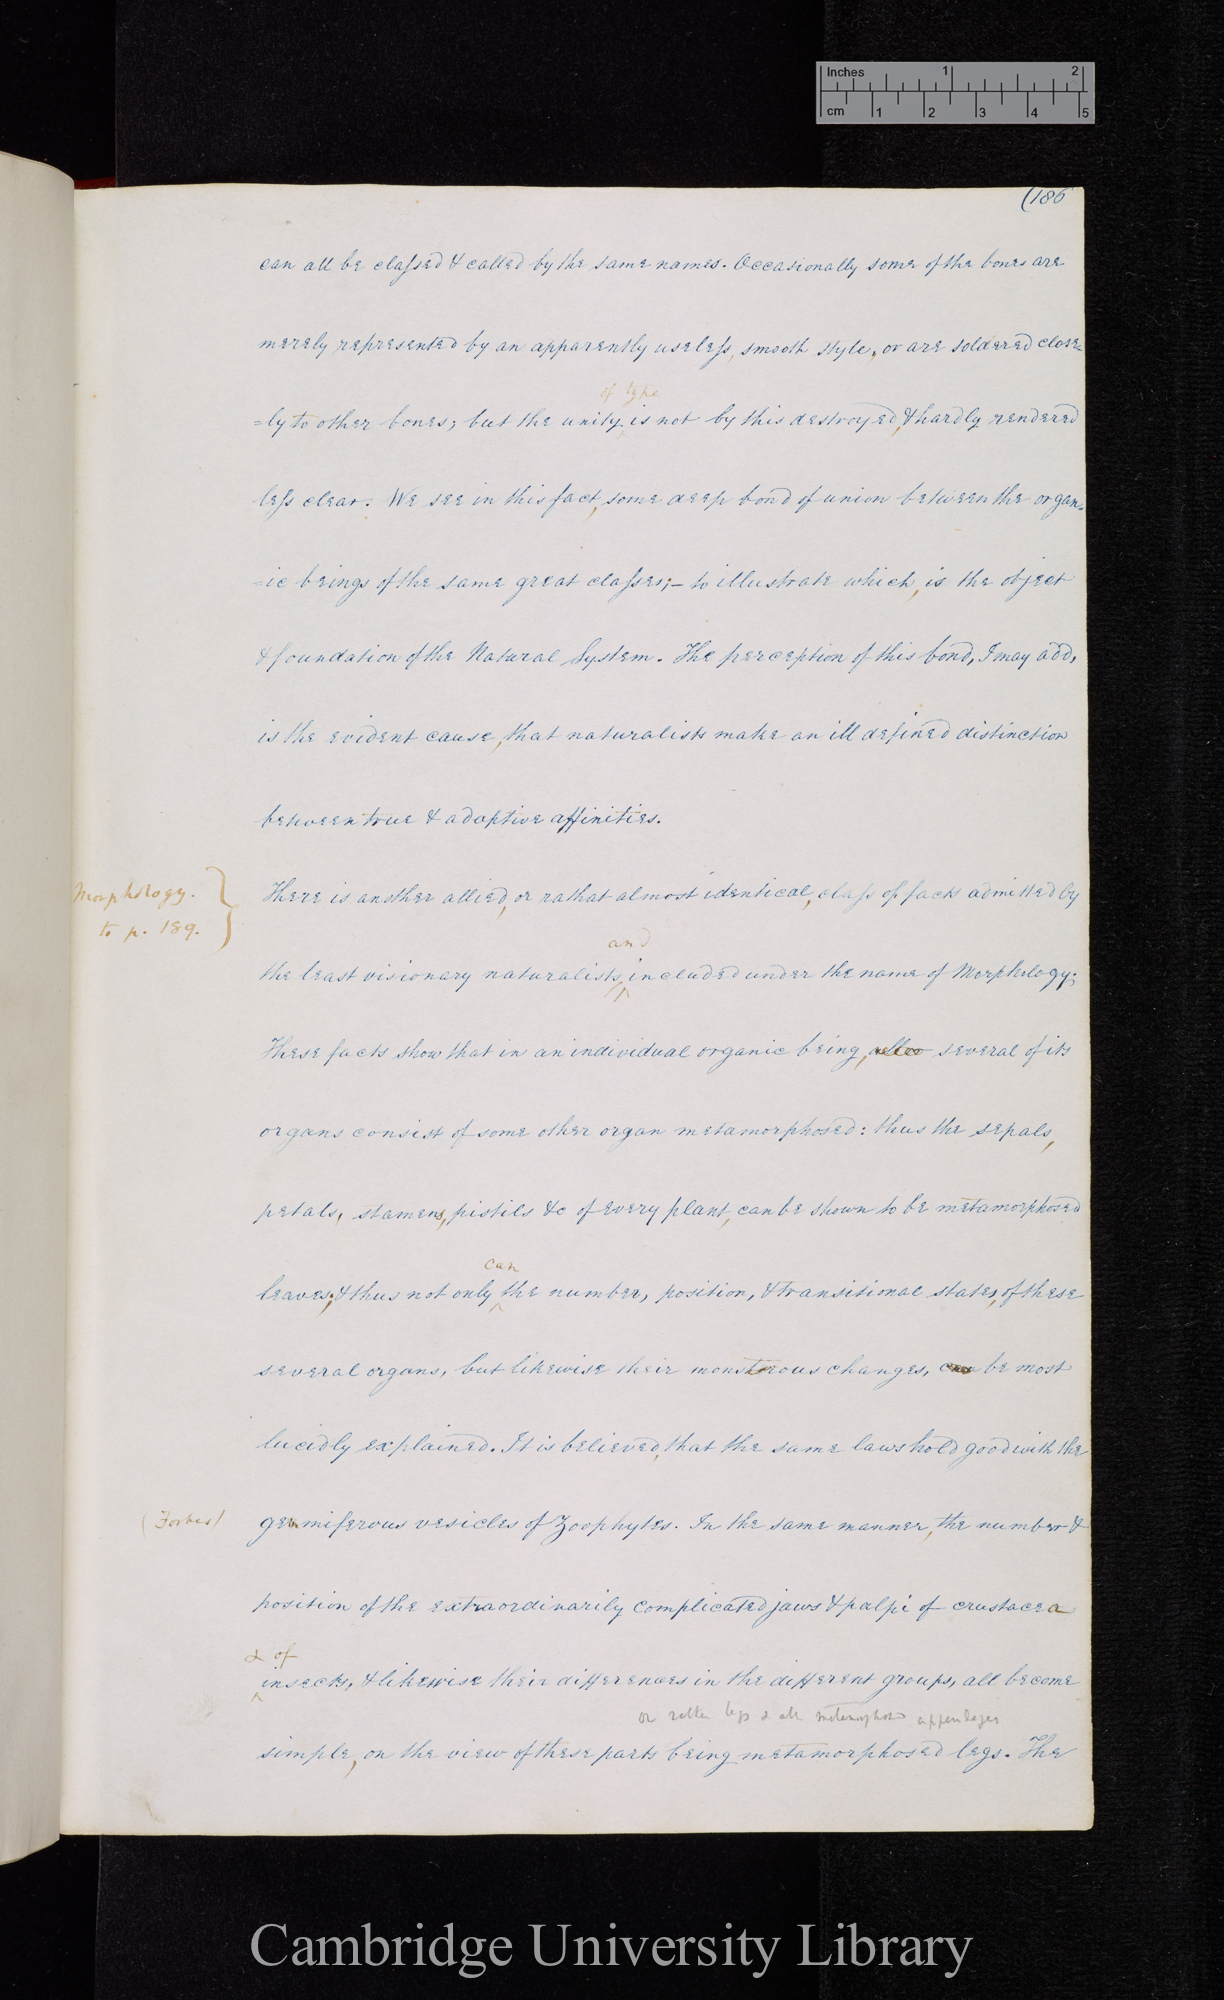 Inches 1 2
cm 1 2 3 4 5
(186
can all be classed & called by the same names. Occasionally some of the bones are
merely represented by an apparently useless, smooth style, or are soldered close=
of type
=ly to other bones; but the unity is not by this destroyed, & hardly rendered
less clear. We see in this fact, some deep bond of union between the organ=
=ic beings of the same great classes;– to illustrate which, is the object
& foundation of the Natural System. The perception of this bond, I may add,
is the evident cause, that naturalists make an ill defined distinction
between true & adoptive affinities.
Morphology.
to p. 189.
There is another allied, or rathat almost identical, class of facts admitted by
and
the least visionary naturalists, included under the name of Morphology;
These facts show that in an individual organic being, several of its
organs consist of some other organ metamorphosed: thus the sepals,
petals, stamens, pistils &c of every plant, can be shown to be metamorphosed
can
leaves; & thus not only the number, position, & transitional states, of these
several organs, but likewise their monstrous changes, can be most
lucidly explained. It is believed, that the same laws hold good with the
(Forbes)
gemmiferous vesicles of Zoophytes. In the same manner, the number &
position of the extraordinarily complicated jaws & palpi of crustacea
& of
insects, & likewise their differences in the different groups, all become
or rather legs & all metamorphosed appendages
simple, on the view of these parts being metamorphosed legs. The
Cambridge University Library